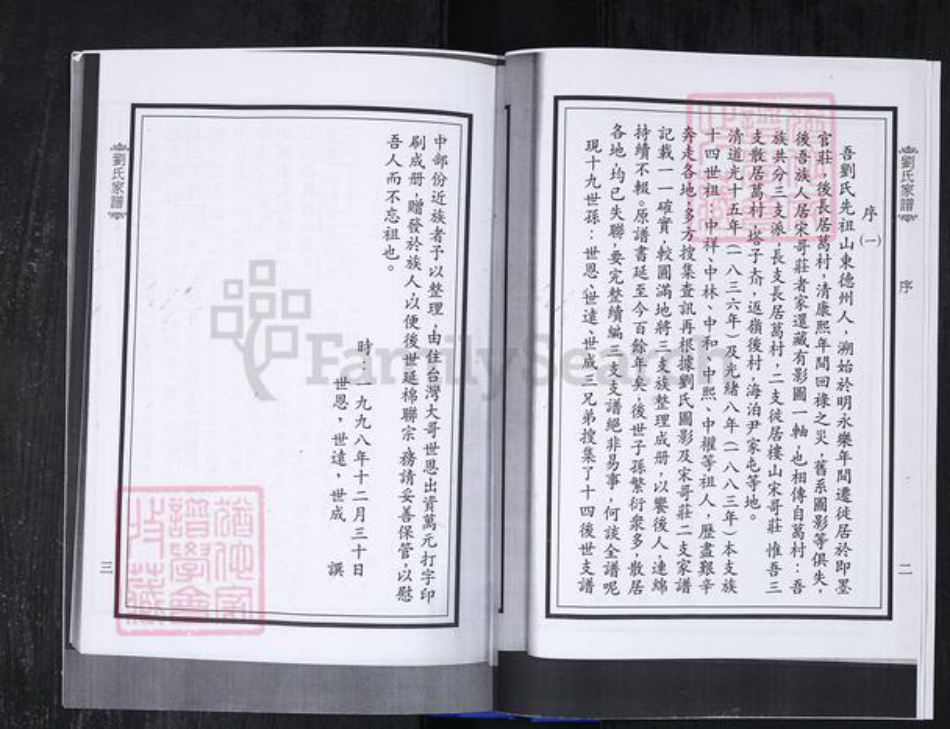 劉氏家譜
序
二
序(一)
吾劉氏先祖山東德州人,溯始於明永樂年間遷徙居於即墨
官莊,後長居葛村,清康熙年間回祿之災,舊系圖影等俱失,
後吾族人居宋哥莊者家還藏有影圖一軸,也相傳自葛村:吾
族共分三支派,長支長居葛村,二支徙居樓山宋哥莊 惟吾三
支散居葛村,塔子夼,返嶺後村,海泊尹家屯等地。
清道光十五年(一八三六年)及光緒八年(一八八三年)本支族
十四世祖:中祥、中林、中和、中熙、中權等祖人,歷盡艱辛
奔走各地,多方搜集查訊再根據劉氏圖影及宋哥莊二支家譜
記載一一確實,較圓滿地將三支族整理成册,以饗後人,連綿
持續不輟。原譜書延至今百餘年矣,後世子孫繁衍衆多,散居
各地,均已失聯,要完整續編三支支譜絕非易事,何談全譜呢
現十九世孫:世恩、世遠、世成三兄弟搜集了十四後世支譜
中部份近族者予以整理,由住台灣大哥世恩出資萬元打字印
刷成册,贈發於族人,以便後世延棉聯宗,務請妥善保管,以慰
吾人而不忘祖也。
時 一九九八年十二月三十日
世恩,世遠,世成 譔
劉氏家譜
三
猶他家
譜學會
收藏
FamilySearch